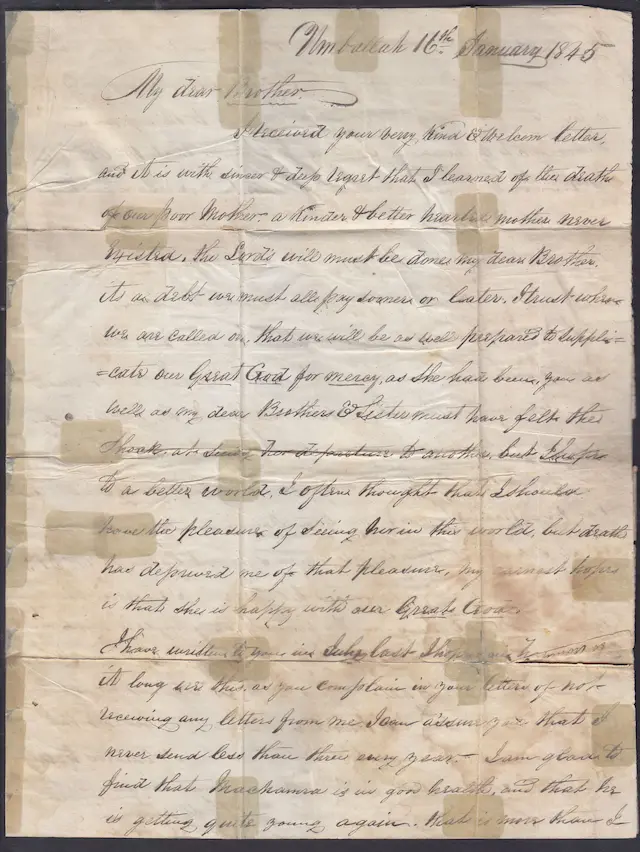 Umballah 16th January 1845
My dear Brother
I received your very kind & welcom letter,
and it is with sincer & deep regret that I learned of the death
of our poor Mother - a kinder & better hearted mother never
existed. the Lord's will must be done my dear Brother.
its a debt we must all pay sooner or later. I trust when
we are called on, that we will be as well prepared to suppli=
=cate our Great God for mercy, as she had been, you as
well as my dear Brothers & Sister must have felt the
shock, at seeing her departure to another, but I hope
to a better world, I often thought that I should
have the pleasure of seeing her in this world, but death
has deprived me of that pleasure, my earnest hopes
is that she is happy with our Great God.
I have written to you in July last I hope
it long ere this, as you complain in your letters of not
receiving any letters from me I can assure you that I
never send less than three every year. - I am glad to
find that is in good health, and that he
is getting quite young again. that is more than I